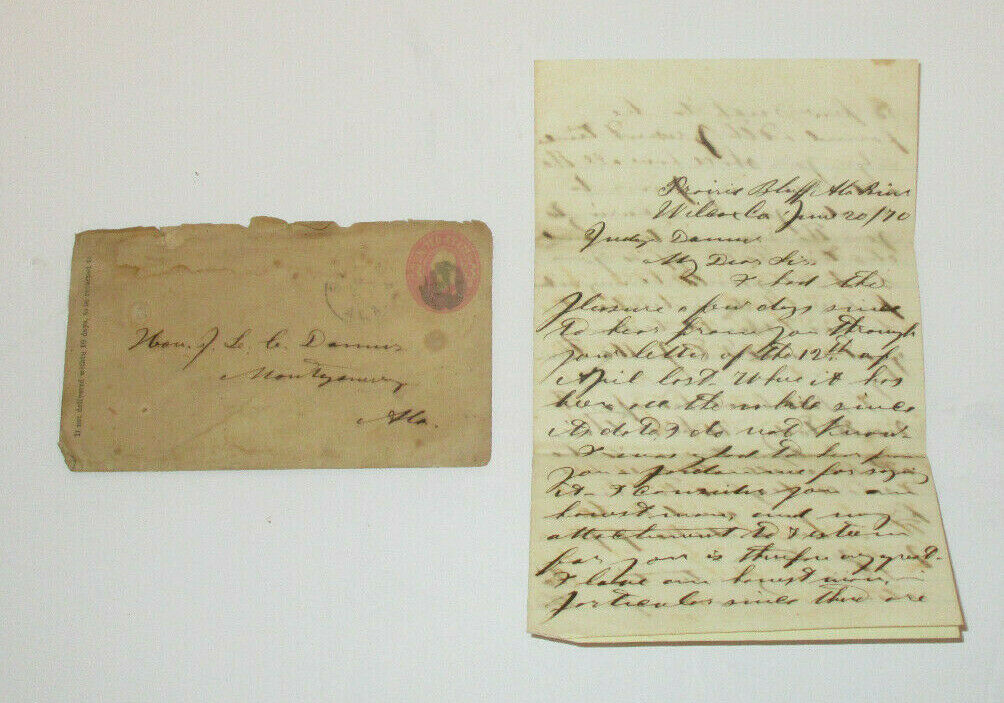 If not delivered within 10 days, to be returned to
Hon. J. L. C. Danner
Montgomery
Ala.
Prairie Bluff Ala River
Wilcox Co June 20/70
Judge Danner
My Dear Sir
I had the
pleasure a few days since
to hear from you through
your letter of the 12th of
April last. Where it has
been all the while since
its date I do not know.
I was glad to hear from
you & pardon me for saying
it. I consider you an
honest man, and my
attachment to & esteem
for you is therefore very great.
I love an honest man, in
particular since there are